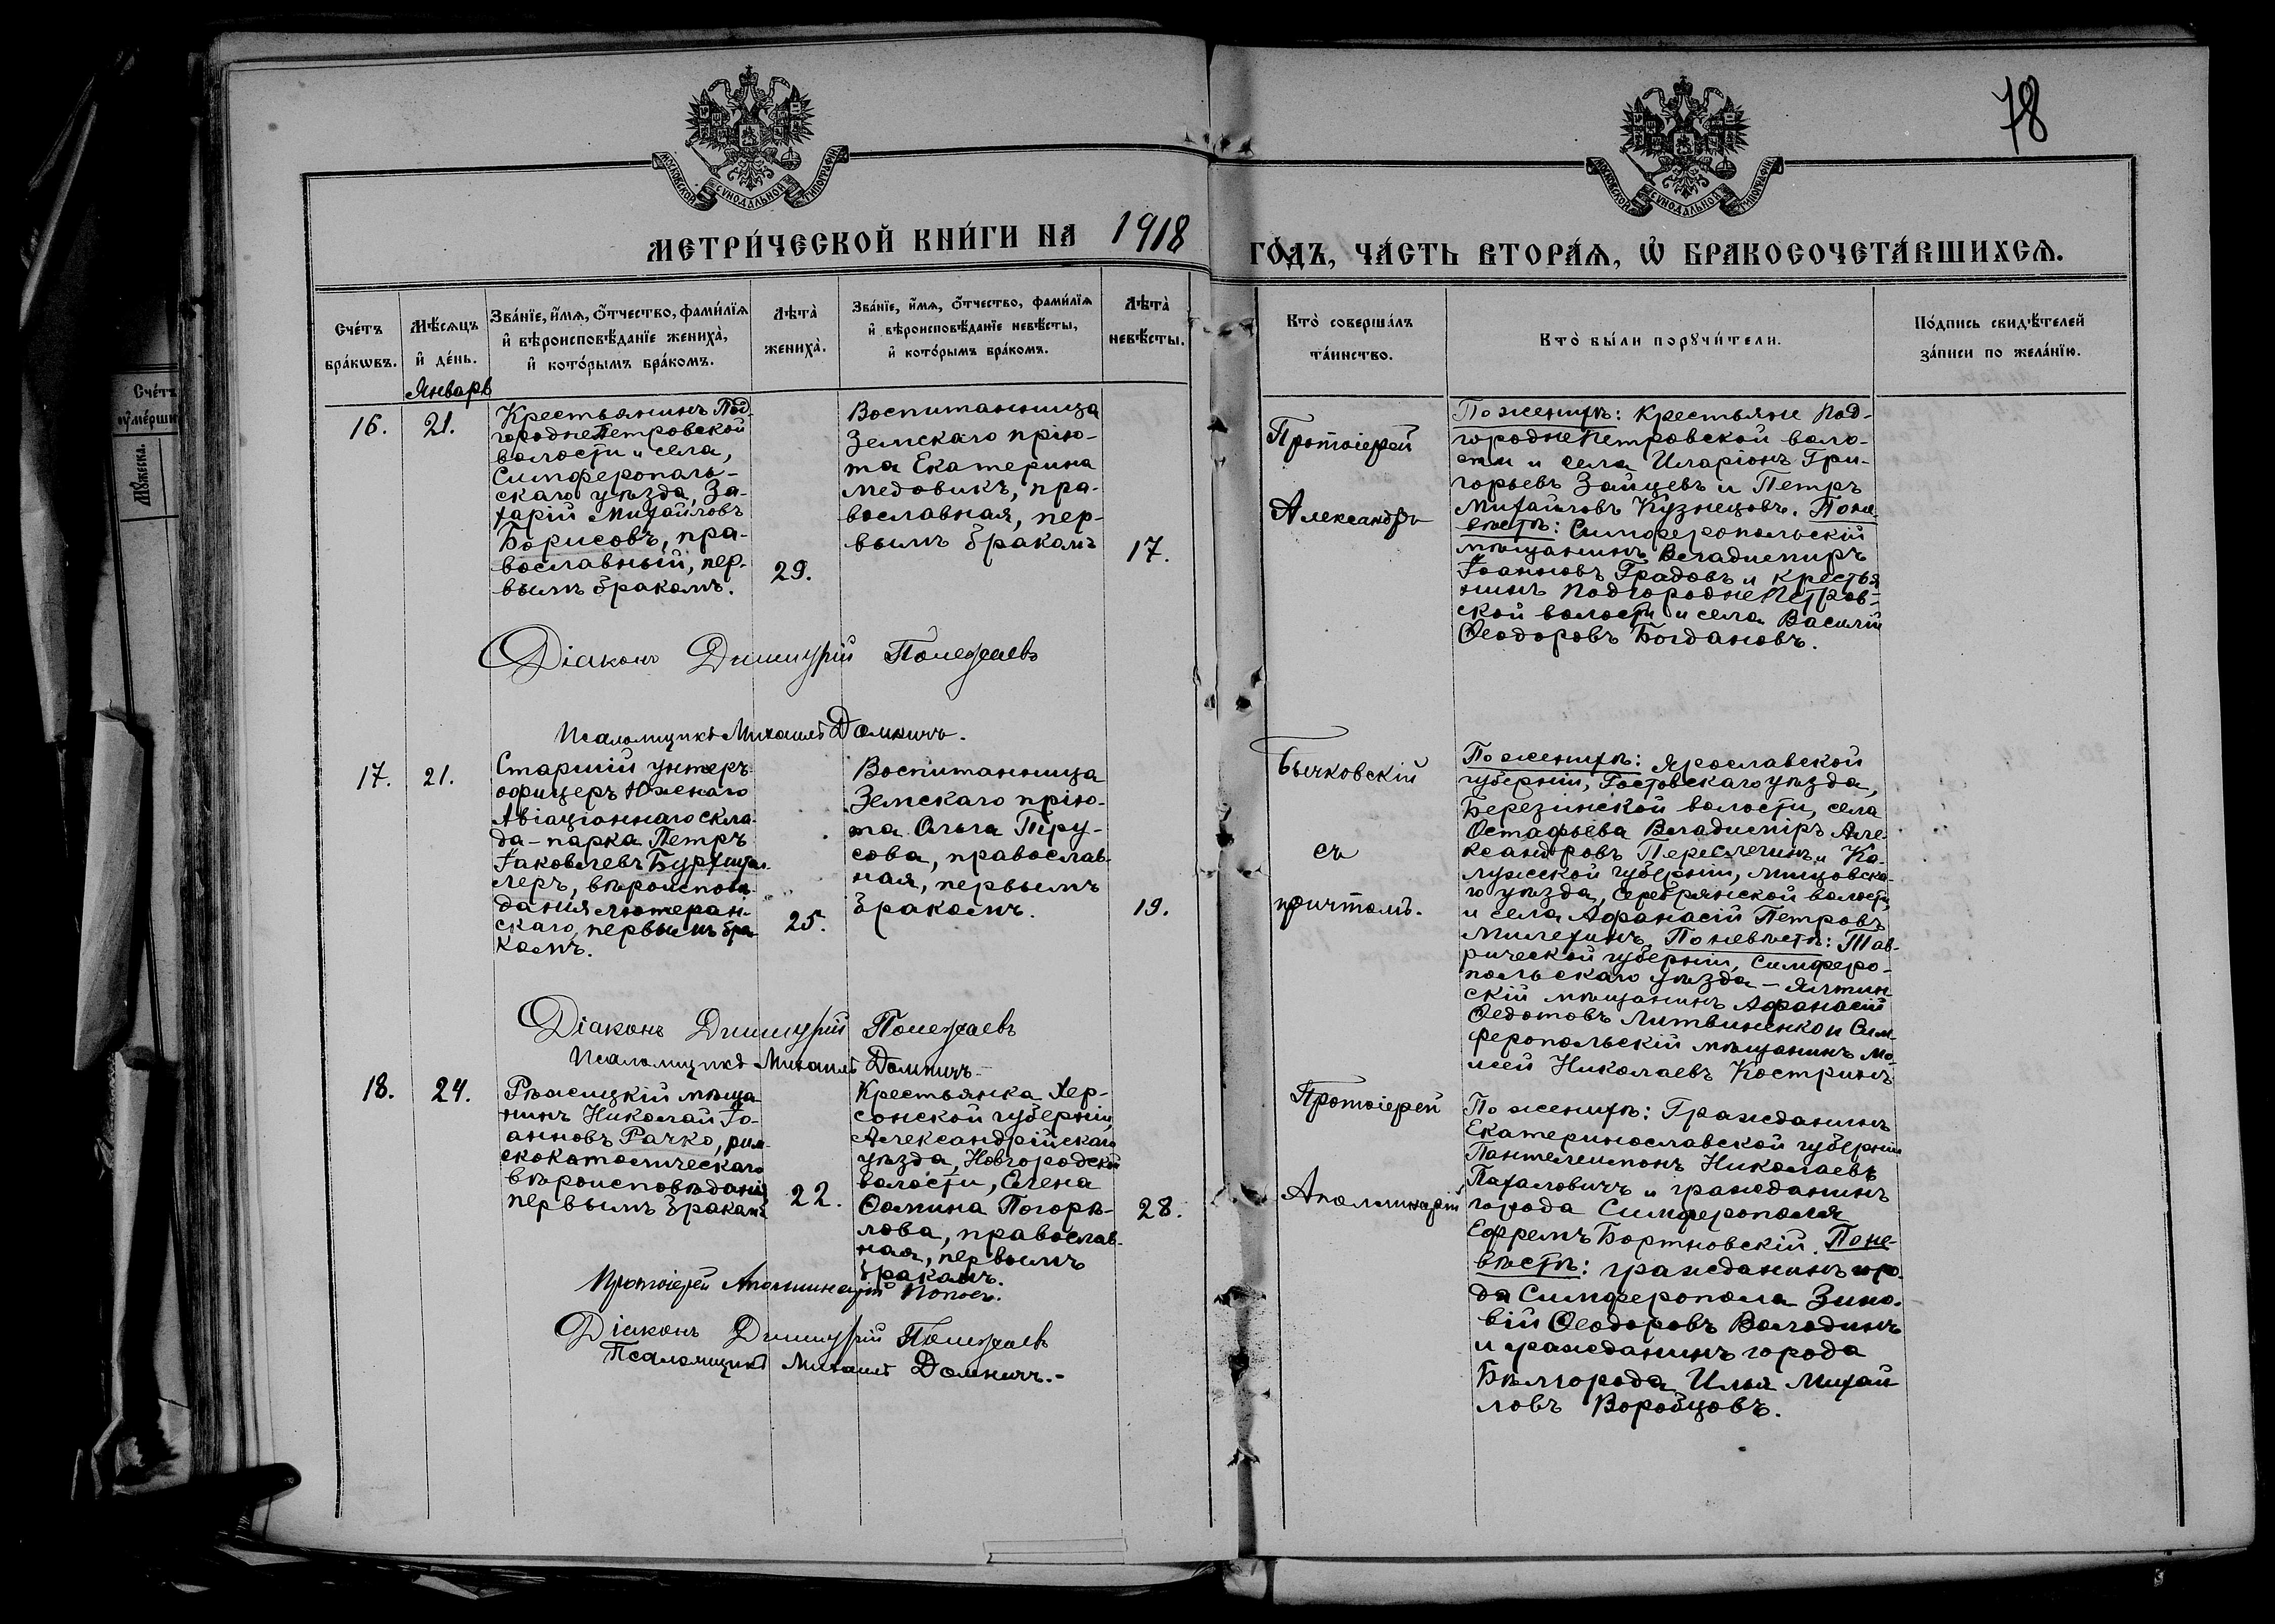 78
МОСКОВСКОЙ СѴНОДАЛЬНОЙ ТИПОГРАФІИ
МОСКОВСКОЙ СѴНОДАЛЬНОЙ ТИПОГРАФІИ
МЕТРИ́ЧЕСКОЙ КНИ́ГИ НА 1918 ГО́ДЪ, ЧА́СТЬ ВТОРА́Ѧ, Ѡ҆ БРАКОСОЧЕТА́ВШИХСѦ.
Сче́тъ
бра́кѡвъ.
Мѣ́сѧцъ
и҆ де́нь.
Зва́нїе, и҆́мѧ, ѻ҆́тчество, фами́лїѧ
и҆ вѣроисповѣ́данїе жениха̀,
и҆ кото́рымъ бра́комъ.
Лѣта̀
жениха̀.
Зва́нїе, и҆́мѧ, ѻ҆́тчество, фами́лїѧ
и҆ вѣроисповѣ́данїе невѣ́сты,
и҆ кото́рымъ бра́комъ.
Лѣта̀
невѣ́сты.
Кто̀ соверша́лъ
та́инство.
Кто̀ бы́ли порꙋчи́тели.
По́дпись свидѣ́телей
за́писи по жела́нїю.
Январь
16.
21.
Крестьянинъ Под-
городнеПетровской
волости и села,
Симферополь-
скаго уѣзда, За-
харій Михайловъ
Борисовъ, пра-
вославный, пер-
вымъ бракомъ.
29.
Воспитанница
Земскаго прію-
та Екатерина
Медовикъ, пра-
вославная, пер-
вымъ бракомъ
17.
Протоіерей
Александръ
По женихѣ: Крестьяне Под-
городнеПетровской воло-
сти и села Иларіонъ Гри-
горьевъ Зайцевъ и Петръ
Михайловъ Кузнецовъ. По не-
вѣстѣ: Симферопольскій
мѣщанинъ Владимиръ
Іоанновъ Градовъ и крестья
нинъ ПодгороднеПетров-
ской волости и села Василій
Ѳеодоровъ Богдановъ.
Діаконъ Димитрій Полежаевъ
Псаломщикъ Михаилъ Домничъ.
17.
21.
Старшій унтеръ-
офицеръ Южнаго
Авіаціоннаго скла-
да-парка Петръ
Іаковлевъ
леръ, вѣроисповѣ-
данія лютеран-
скаго, первымъ бра-
комъ.
25.
Воспитанница
Земскаго прію-
та Ольга Тру-
сова, православ-
ная, первымъ
бракомъ.
19.
Бычковскій
съ
причтомъ.
По женихѣ: Ярославской
губерніи, Ростовскаго уѣзда,
Березинской волости, села
Остафьева Владиміръ Але-
ксандровъ и Ка-
лужской губерніи,
го уѣзда, Серебрянской волости
и села Афанасій Петровъ
Милехинъ. По невѣстѣ: Тав-
рической губерніи, Симферо-
польскаго уѣзда - Ялтин-
скій мѣщанинъ Афанасій
Ѳедотовъ Литвиненко и Сим-
феропольскій мѣщанинъ Мо-
исей Николаевъ Костринъ
Діаконъ Димитрій Полежаевъ
Псаломщикъ Михаилъ Домничъ.
18.
24.
Рѣжицкій мѣща-
нинъ Николай Іо-
анновъ Рачко, рим-
скокатолическаго
вѣроисповѣданія
первымъ бракомъ
22.
Крестьянка Хер-
сонской губерніи,
Александрійскаго
уѣзда, Новгородской
волости, Елена
Ѳомина Погорѣ-
лова, православ-
ная, первымъ
бракомъ.
28.
Протоіерей
Аполлинарій
По женихѣ: Гражданинъ
Екатеринославской губерніи
Пантелеимонъ Николаевъ
Пахаловичъ и гражданинъ
города Симферополя
Ефремъ Бортновскій. По не-
вѣстѣ: гражданинъ горо-
да Симферопола Зино-
вій Ѳеодоровъ Володинъ
и гражданинъ города
Бѣлгорода Илья Михай
ловъ Воробцовъ.
Протоіерей Аполлинарій Поповъ.
Діаконъ Димитрій Полежаевъ
Псаломщикъ Михаилъ Домничъ.-
Сче́тъ
Мꙋ́жеска.